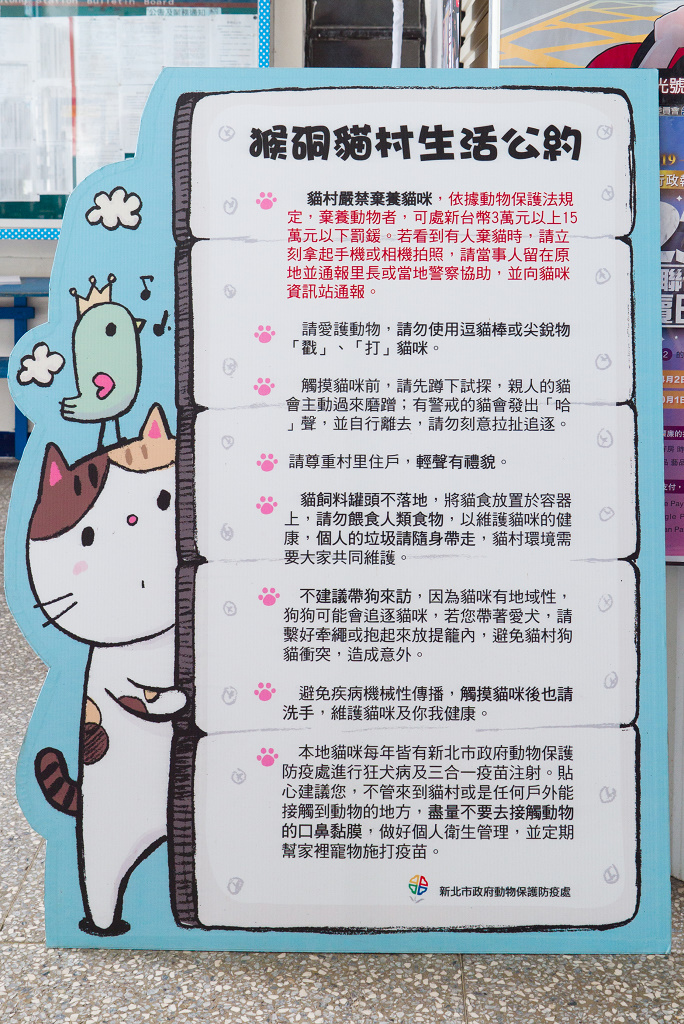 Station Bulletin Board
公告及服務通知
猴硐貓村生活公約
貓村嚴禁棄養貓咪，依據動物保護法規
定，棄養動物者，可處新台幣3萬元以上15
萬元以下罰鍰。若看到有人棄貓時，請立
刻拿起手機或相機拍照，請當事人留在原
地並通報里長或當地警察協助，並向貓咪
資訊站通報。
請愛護動物，請勿使用逗貓棒或尖銳物
「戳」、「打」貓咪。
觸摸貓咪前，請先蹲下試探，親人的貓
會主動過來磨蹭；有警戒的貓會發出「哈
」聲，並自行離去，請勿刻意拉扯追逐。
請尊重村里住戶，輕聲有禮貌。
貓飼料罐頭不落地，將貓食放置於容器
上，請勿餵食人類食物，以維護貓咪的健
康，個人的垃圾請隨身帶走，貓村環境需
要大家共同維護。
不建議帶狗來訪，因為貓咪有地域性，
狗狗可能會追逐貓咪，若您帶著愛犬，請
繫好牽繩或抱起來放提籠內，避免貓村狗
貓衝突，造成意外。
避免疾病機械性傳播，觸摸貓咪後也請
洗手，維護貓咪及你我健康。
本地貓咪每年皆有新北市政府動物保護
防疫處進行狂犬病及三合一疫苗注射。貼
心建議您，不管來到貓村或是任何戶外能
接觸到動物的地方，盡量不要去接觸動物
的口鼻黏膜，做好個人衛生管理，並定期
幫家裡寵物施打疫苗。
新北市政府動物保護防疫處